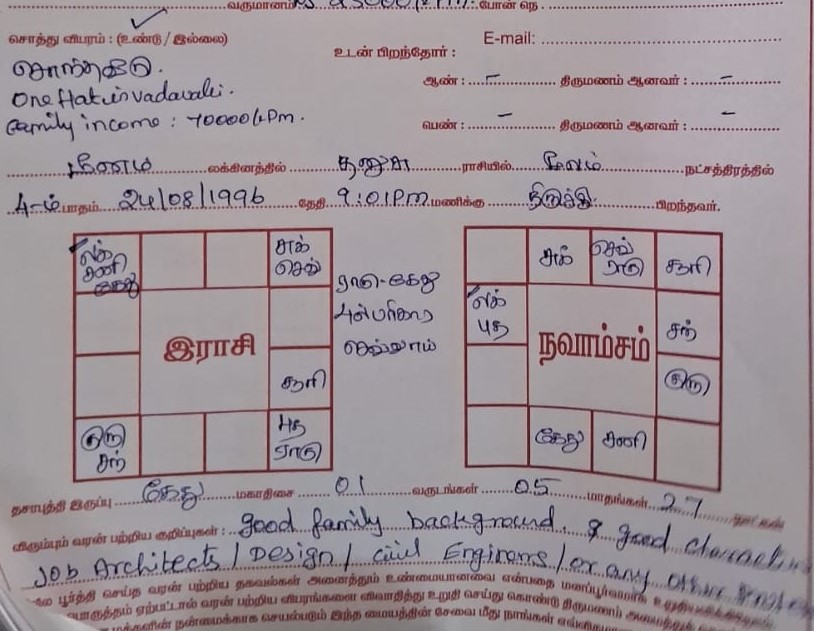 வருமானம் Rs 25000/Pm. போன் நெ.
சொத்து விபரம் : (உண்டு / இல்லை)
E-mail:
உடன் பிறந்தோர் :
சொந்தவீடு.
ஆண் : – திருமணம் ஆனவர் : –
One flat in vadavalli.
Family income : 70000/-Pm.
பெண் : – திருமணம் ஆனவர் : –
மீனம் லக்கினத்தில் தனுசு ராசியில் மூலம் நட்சத்திரத்தில்
4-ம் பாதம் 24/08/1996 தேதி 9:01PM மணிக்கு பிறந்தவர்.
லக் சனி கேது
சுக் செவ்
சுக்
செவ் ராகு
சூரி
ராகு-கேது
லக் புத
சந்
இராசி
நவாம்சம்
செய்யாம்
சூரி
குரு
குரு சந்
புத ராகு
கேது
சனி
தசாபுத்தி இருப்பு கேது மகாதிசை 01 வருடங்கள் 05 மாதங்கள் 27 நாட்கள்
விரும்பும் வரன் பற்றிய குறிப்புகள் : good family background & good
Job Architects / Design / civil Engineers / or any other
பூர்த்தி செய்த வரன் பற்றிய தகவல்கள் அனைத்தும் உண்மையானவை என்பதை மனப்பூர்வமாக
பொருத்தம் ஏற்பட்டால் வரன் பற்றிய விபரங்களை விவாதித்து உறுதி செய்து கொண்டு திருமணம்
மக்களின் நன்மைக்காக செயல்படும் இந்த மையத்தின் சேவை மீது நாங்கள்